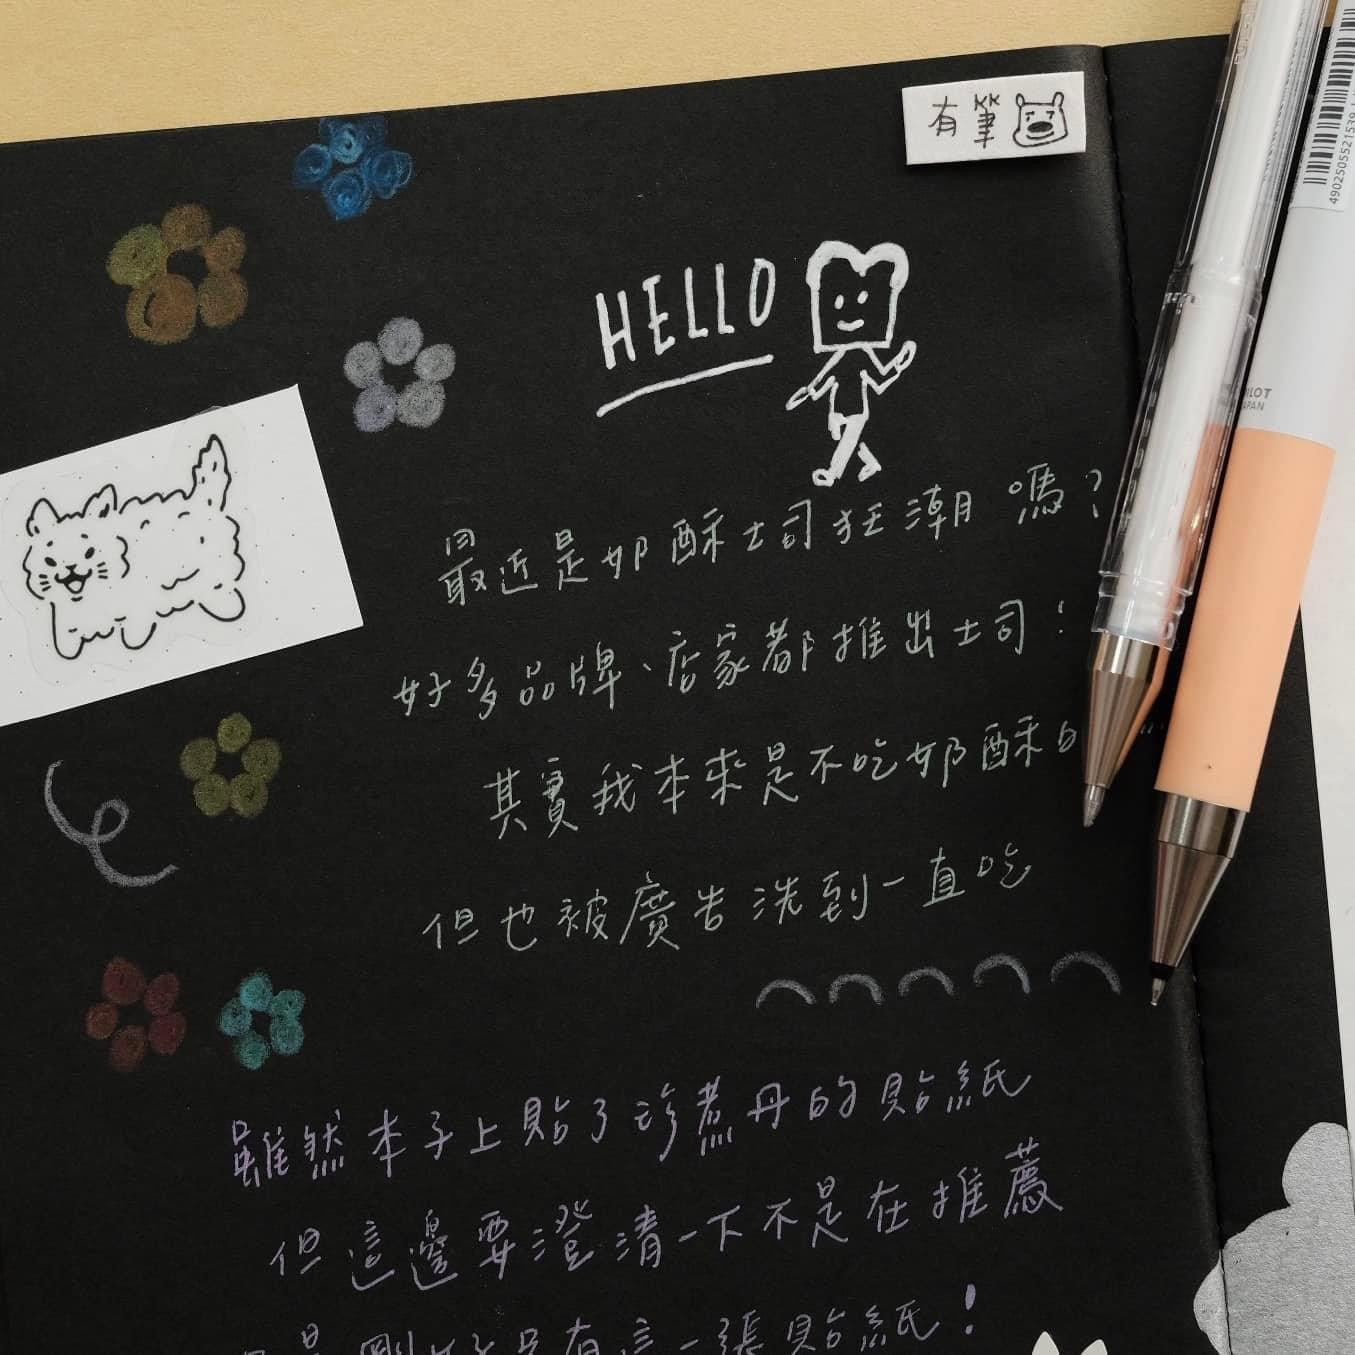 有筆
HELLO
最近是奶酥土司狂潮嗎？
好多品牌、店家都推出土司！
其實我本來是不吃奶酥
但也被廣告洗到一直吃
雖然本子上貼了珍煮丹的貼紙
但這邊要澄清一下不是在推薦
是剛好只有這一張貼紙！
4902505521539
JAPAN